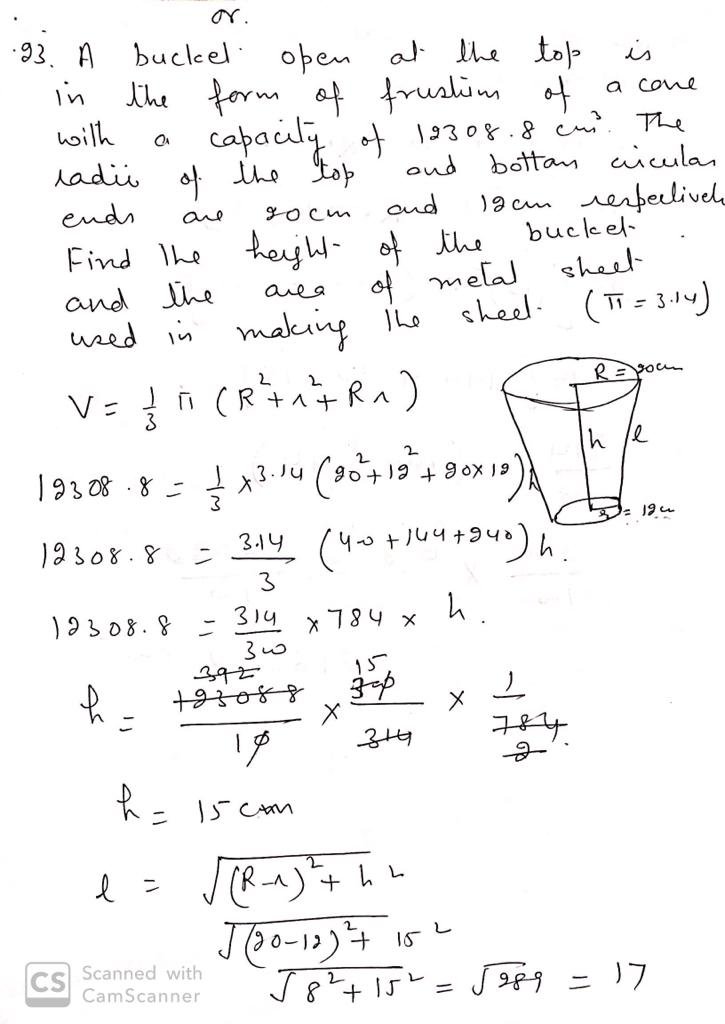 or.
23. A bucket open at the top is
in the form of frustum of a cone
with a capacity of 12308.8 cm³. The
radii of the top and bottom circular
ends are 20cm and 12cm respectively
Find the height of the bucket
and the area of metal sheet
used in making the sheet. (π = 3.14)
R = 20cm
V = 1/3 π (R² + r² + Rr)
h l
12308.8 = 1/3 × 3.14 (20² + 12² + 20×12) h
= 12cm
12308.8 = 3.14/3 (400 + 144 + 240) h.
12308.8 = 314/300 × 784 × h.
392 15
h = 123088/10 × 300/314 × 1/784
2
h = 15 cm
l = √(R-r)² + h²
√(20-12)² + 15²
√8² + 15² = √289 = 17
CS Scanned with
CamScanner